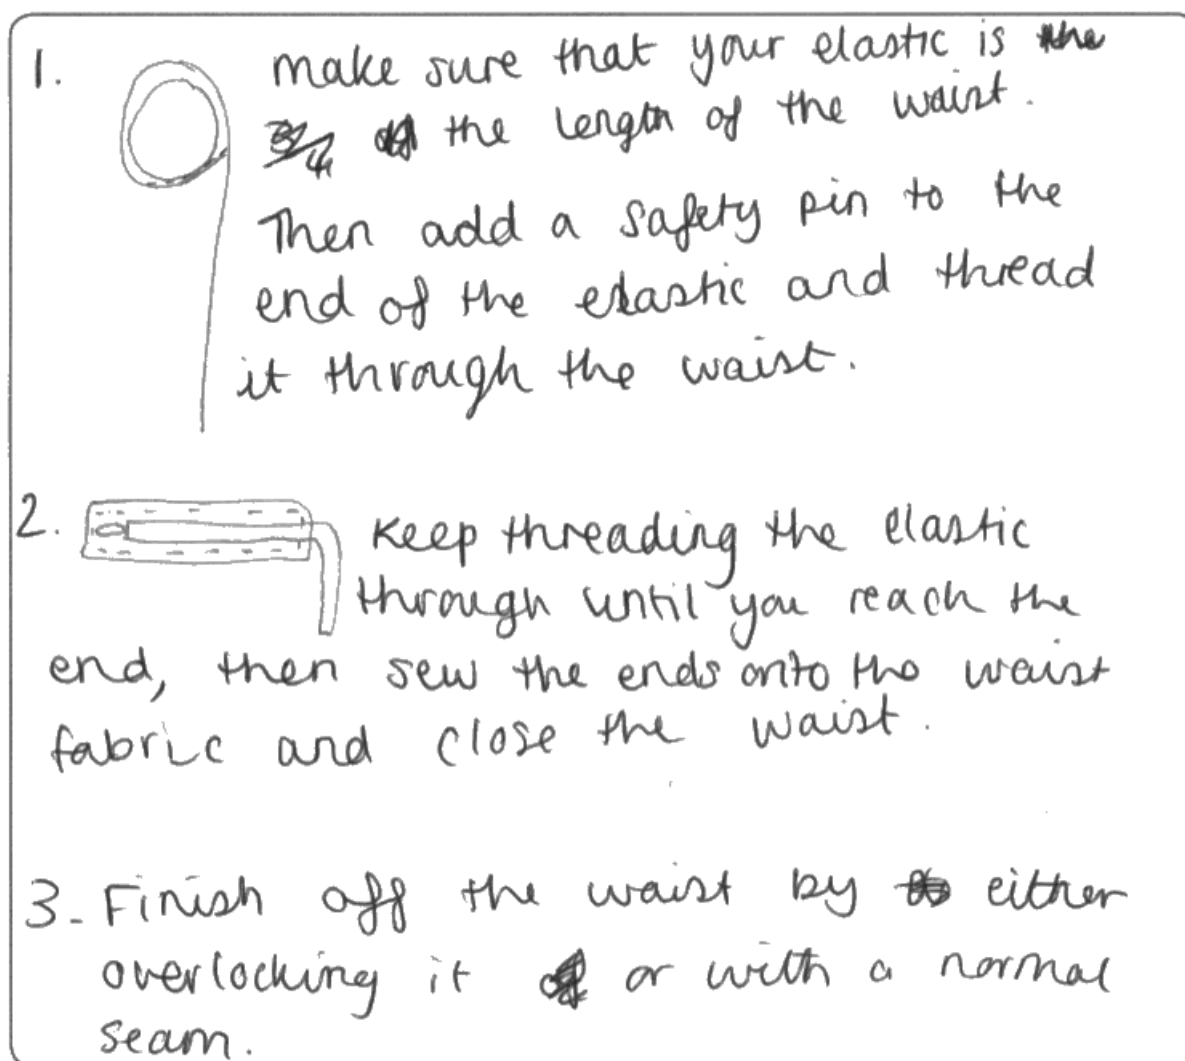 1. make sure that your elastic is
the length of the waist.
Then add a safety pin to the
end of the elastic and thread
it through the waist.
2. Keep threading the elastic
through until you reach the
end, then sew the ends onto the waist
fabric and close the waist.
3- Finish off the waist by either
overlocking it or with a normal
seam.